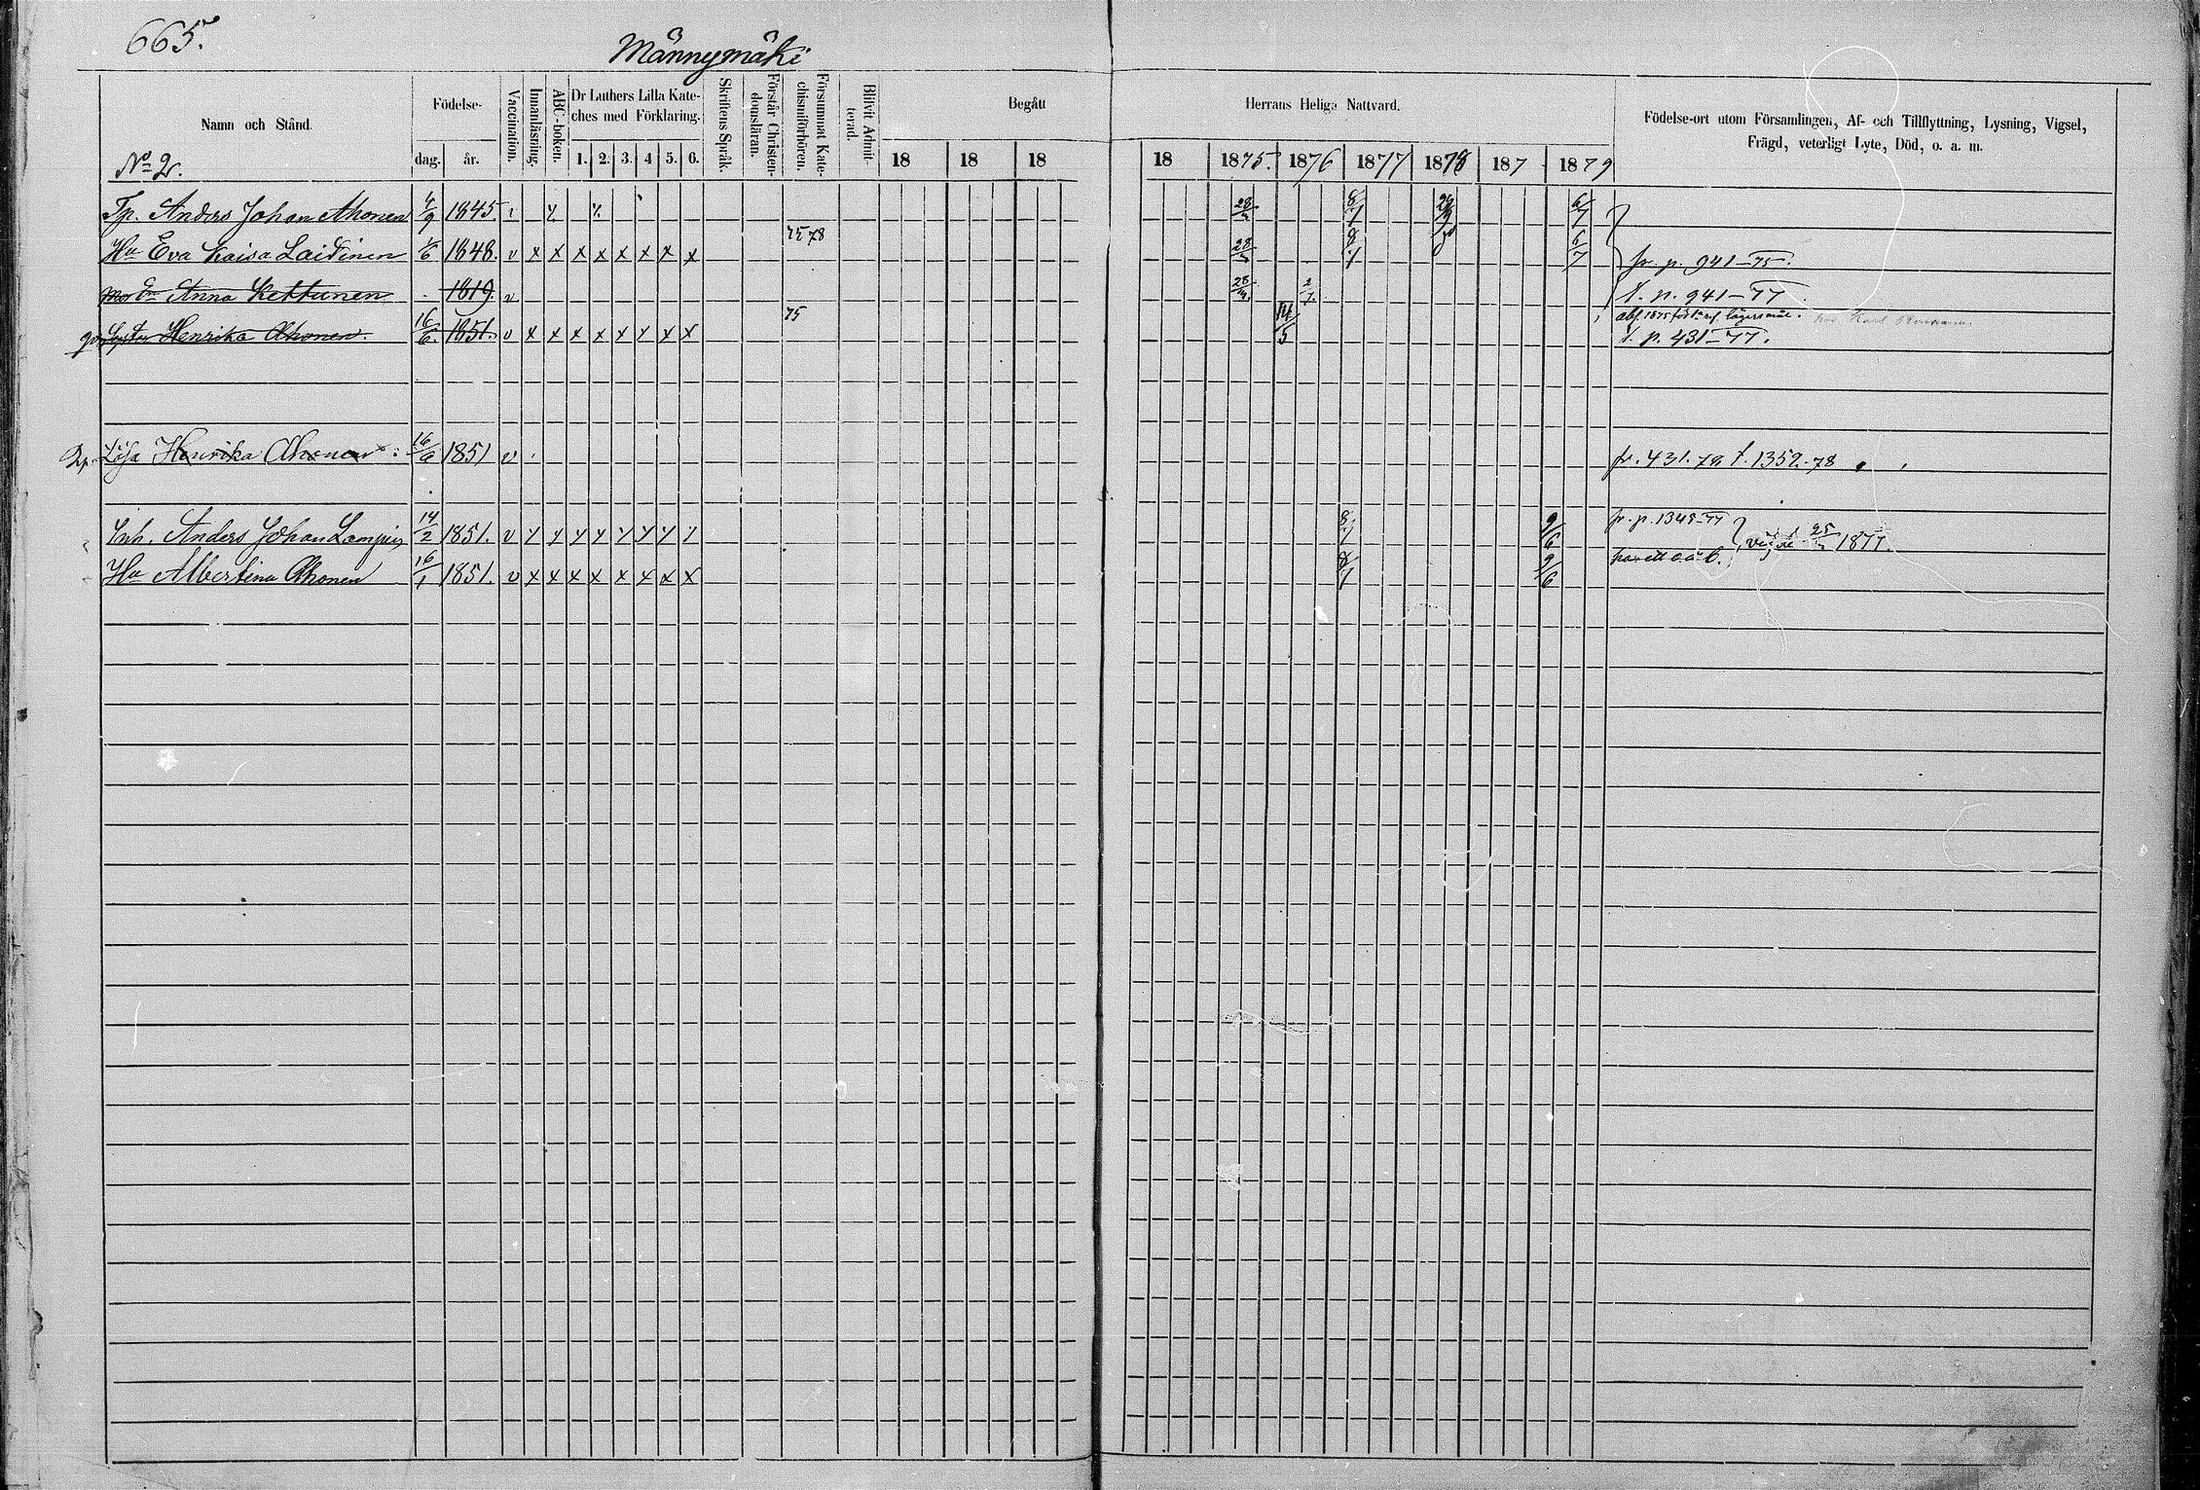 665.
Männymäki
Namn och Stånd.
Födelse-
dag. år.
Vaccination.
Innanläsning.
ABC-boken.
Dr Luthers Lilla Kate-
ches med Förklaring.
1. 2. 3. 4 5. 6.
Skriftens Språk.
Förstår Christen-
domsläran.
Försummat Kate-
chismiförhören.
Blifvit Admit-
terad.
Begått
18 18 18
Herrans Heliga Nattvard.
18 1875. 1876 1877 1878 187 1879
Födelse-ort utom Församlingen, Af- och Tillflyttning, Lysning, Vigsel,
Frägd, veterligt Lyte, Död, o. a. m.
No 2.
Tp. Anders Johan Ahonen 4/9 1845. 28/ 8/7 6/7
75 78
Hu Eva Kaisa Laitinen 1/6 1848. v x x x x x x x x 28/ 8/7 6/7 fr. p. 941-75.
Anna Kettunen 1819. v 28/ 2/7 t. p. 941-77
75
Henrika Ahonen. 16/6 1851. v x x x x x x x x 14/5
t. p. 431-77.
Lösa Henrika Ahonen 16/6 1851 v fr. 431. t. 1352.-78
Inh. Anders Johan 14/2 1851. v y y y y y y y y 8/7 9/6 fr. p. 1345-77
25/ 1877.
Hu Albertina Ahonen 16/1 1851. v x x x x x x x x 8/7 9/6